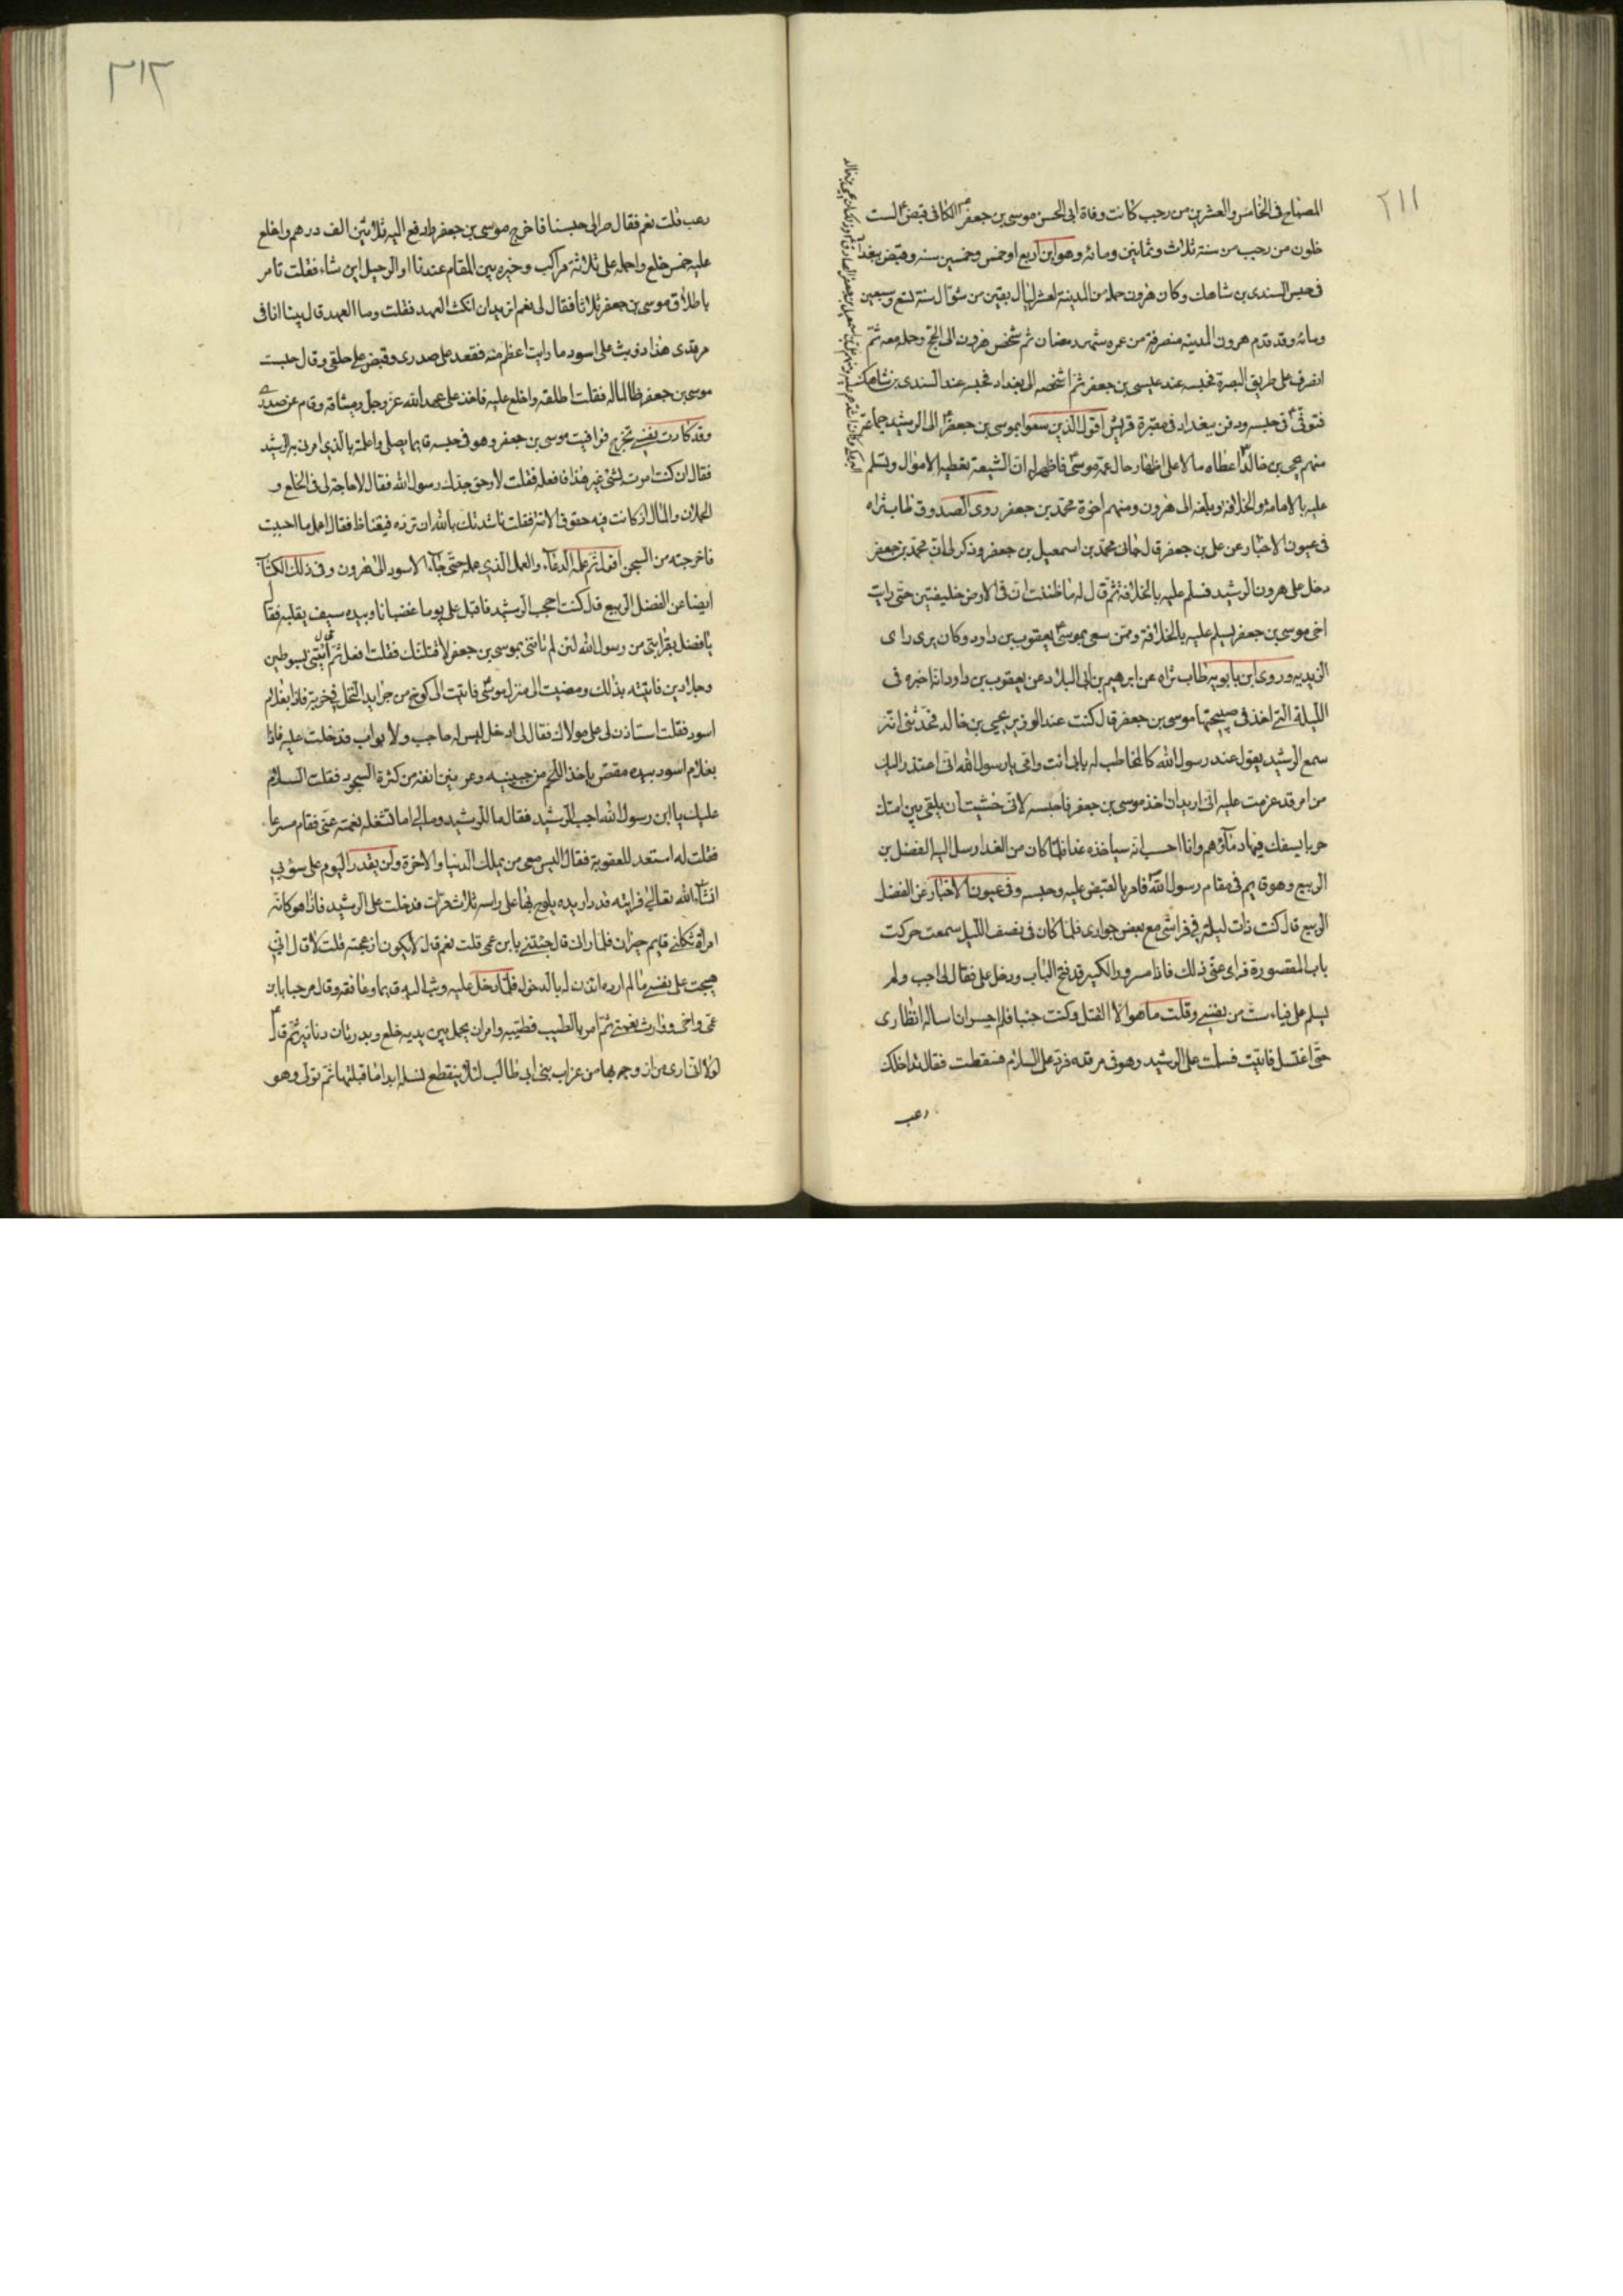 ٢١١
المصباح فى الخامس والعشرين من رجب كانت وفاة ابى الحسن موسى بن جعفر الكافى قبض لست
خلون من رجب من سنة ثلاث وثمانين ومائه وهو ابن اربع او خمس وخمسين سنه وقبض ببغداد
فى حبس السندى بن شاهك وكان هرون حمله من المدينة لعشر ليال بقين من شوال سنة تسع وسبعين
ومائه وقد قدم هرون المدينه منصرفة من عمره شهر رمضان ثم شخص هرون الى الحج وحمله معه ثم
انصرف على طريق البصرة فحبسه عند عيسى بن جعفر ثم اشخصه الى بغداد فحبسه عند السندى بن شاهك
فتوفى فى حبسه ودفن ببغداد فى مقبرة قريش اقول الذين سعوا بموسى بن جعفر الى الرشيد جماعة
منهم يحيى بن خالد اعطاه مالا على اظهار حال عمه موسى فاظهر له ان الشيعة تعطيه الاموال وتسلم
عليه بالامامة والخلافة ويبلغه الى هرون ومنهم اخوة محمد بن جعفر روى الصدوق طاب ثراه
فى عيون الاخبار عن على بن جعفر قال جائنى محمد بن اسمعيل بن جعفر وذكر لى ان محمد بن جعفر
دخل على هرون الرشيد فسلم عليه بالخلافة ثم قال له ما ظننت ان فى الارض خليفتين حتى رايت
اخى موسى بن جعفر يسلم عليه بالخلافة وممن سعى بموسى يعقوب بن داود وكان يرى راى
الزيديه وروى ابن بابويه طاب ثراه عن ابرهيم بن ابى البلاد عن يعقوب بن داود انه اخبره فى
الليلة التى اخذ فى صبيحتها موسى بن جعفر قال كنت عند الوزير يحيى بن خالد فحدثنى انه
سمع الرشيد يقول عند رسول الله كالمخاطب له بابى انت وامى يا رسول الله انى اعتذر اليك
من امر قد عزمت عليه انى اريد ان اخذ موسى بن جعفر فاحبسه لانى خشيت ان يلقى بين امتك
حربا يسفك فيها دمائهم وانا احسب انه سياخذه غدا فلما كان من الغد ارسل اليه الفضل بن
الربيع وهو قايم فى مقام رسول الله فامر بالقبض عليه وحبسه وفى عيون الاخبار عن الفضل
الربيع قال كنت ذات ليلة فى فراشى مع بعض جوارى فلما كان فى نصف الليل سمعت حركت
باب المقصورة فراعنى ذلك فاذا مسرور الكبير قد فتح الباب ودخل على فقال لى اجب ولم
يسلم على فياست من نفسى وقلت ما هو الا القتل وكنت جنبا فلم اجسر ان اساله انظارى
حتى اغتسل فاتيت فسلمت على الرشيد وهو فى مرقده فرد على السلام فسقطت فقال تداخلك
رعب
٢١٢
رعب قلت نعم فقال صر الى حبسنا فاخرج موسى بن جعفر وادفع اليه ثلاثين الف درهم واخلع
عليه خمس خلع واحمله على ثلاثة مراكب وخيره بين المقام عندنا او الرحيل اين شاء فقلت تامر
باطلاق موسى بن جعفر ثلاثا فقال لى نعم اتريد ان انكث العهد فقلت وما العهد قال بينا انا فى
مرقدى هذا اذ وثب على اسود ما رايت اعظم منه فقعد على صدرى وقبض على حلقى وقال حبست
موسى بن جعفر ظالما له فقلت اطلقه واخلع عليه فاخذ على عهد الله عز وجل وميثاقه وقام عن صدرى
وقد كادت نفسى تخرج فوافيت موسى بن جعفر وهو فى حبسه قايما يصلى واعلمته بالذى امرنى به الرشيد
فقال ان كنت امرت بشئ غير هذا فافعله فقلت لا وحق جدك رسول الله فقال لا حاجة لى فى الخلع و
الحملان والمال اذ كانت فيه حقوق الامة فقلت ناشدتك بالله ان ترده فيغتاظ فقال اعمل ما احببت
فاخرجته من السجن اقول ثم علمه الدعاء والعمل الذى عمله حتى جاء الاسود الى هرون وفى ذلك الكتاب
ايضا عن الفضل الربيع قال كنت احجب الرشيد فاقبل على يوما غضبانا وبيده سيف يقلبه فقال
يا فضل بقرابتى من رسول الله لئن لم تاتنى بموسى بن جعفر لاقتلنك فقلت افعل ثم ائتنى بسوطين
وجلادين فاتيته بذلك ومضيت الى منزل موسى فاتيت الى كوخ من جرايد النخل فى خربة فاذا بغلام
اسود فقلت استاذن لى على مولاك فقال لى ادخل ليس له حاجب ولا بواب فدخلت عليه فاذا
بغلام اسود بيده مقص ياخذ اللحم من جبينه وعرنين انفه من كثرة السجود فقلت السلام
عليك يا ابن رسول الله اجب الرشيد فقال ما للرشيد ومالى اما تشغله نعمته عنى فقام مسرعا
فقلت له استعد للعقوبة فقال اليس معى من يملك الدنيا والاخرة ولن يقدر اليوم على سؤبى
انشاء الله تعالى فرايته قد ادار يده يلوح بها على راسه ثلاث مرات فدخلت على الرشيد فاذا هو كانه
امراة ثكلى قايم حيران فلما رانى قال جئتنى بابن عمى قلت نعم قال لا يكون ازعجته قلت لا قال انى
هيجت على نفسى ما لم ارده ائذن له بالدخول فلما دخل عليه وثب اليه قايما وعانقه وقال مرحبا بابن
عمى واخى ووارث نعمتى ثم امر بالطيب فطيبه وامر ان يحمل بين يديه خلع وبدرتان دنانير ثم قال
لولا انى ارى من ازوجه بها من عزاب بنى ابى طالب لئلا ينقطع نسله ابدا ما قبلتها ثم تولى وهو